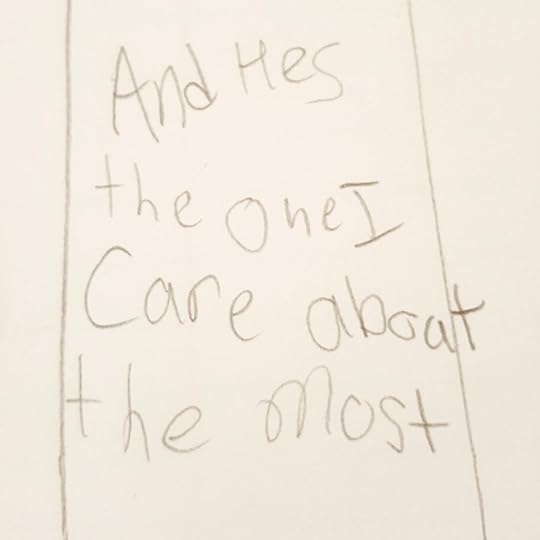 And Hes
the one I
Care about
the most